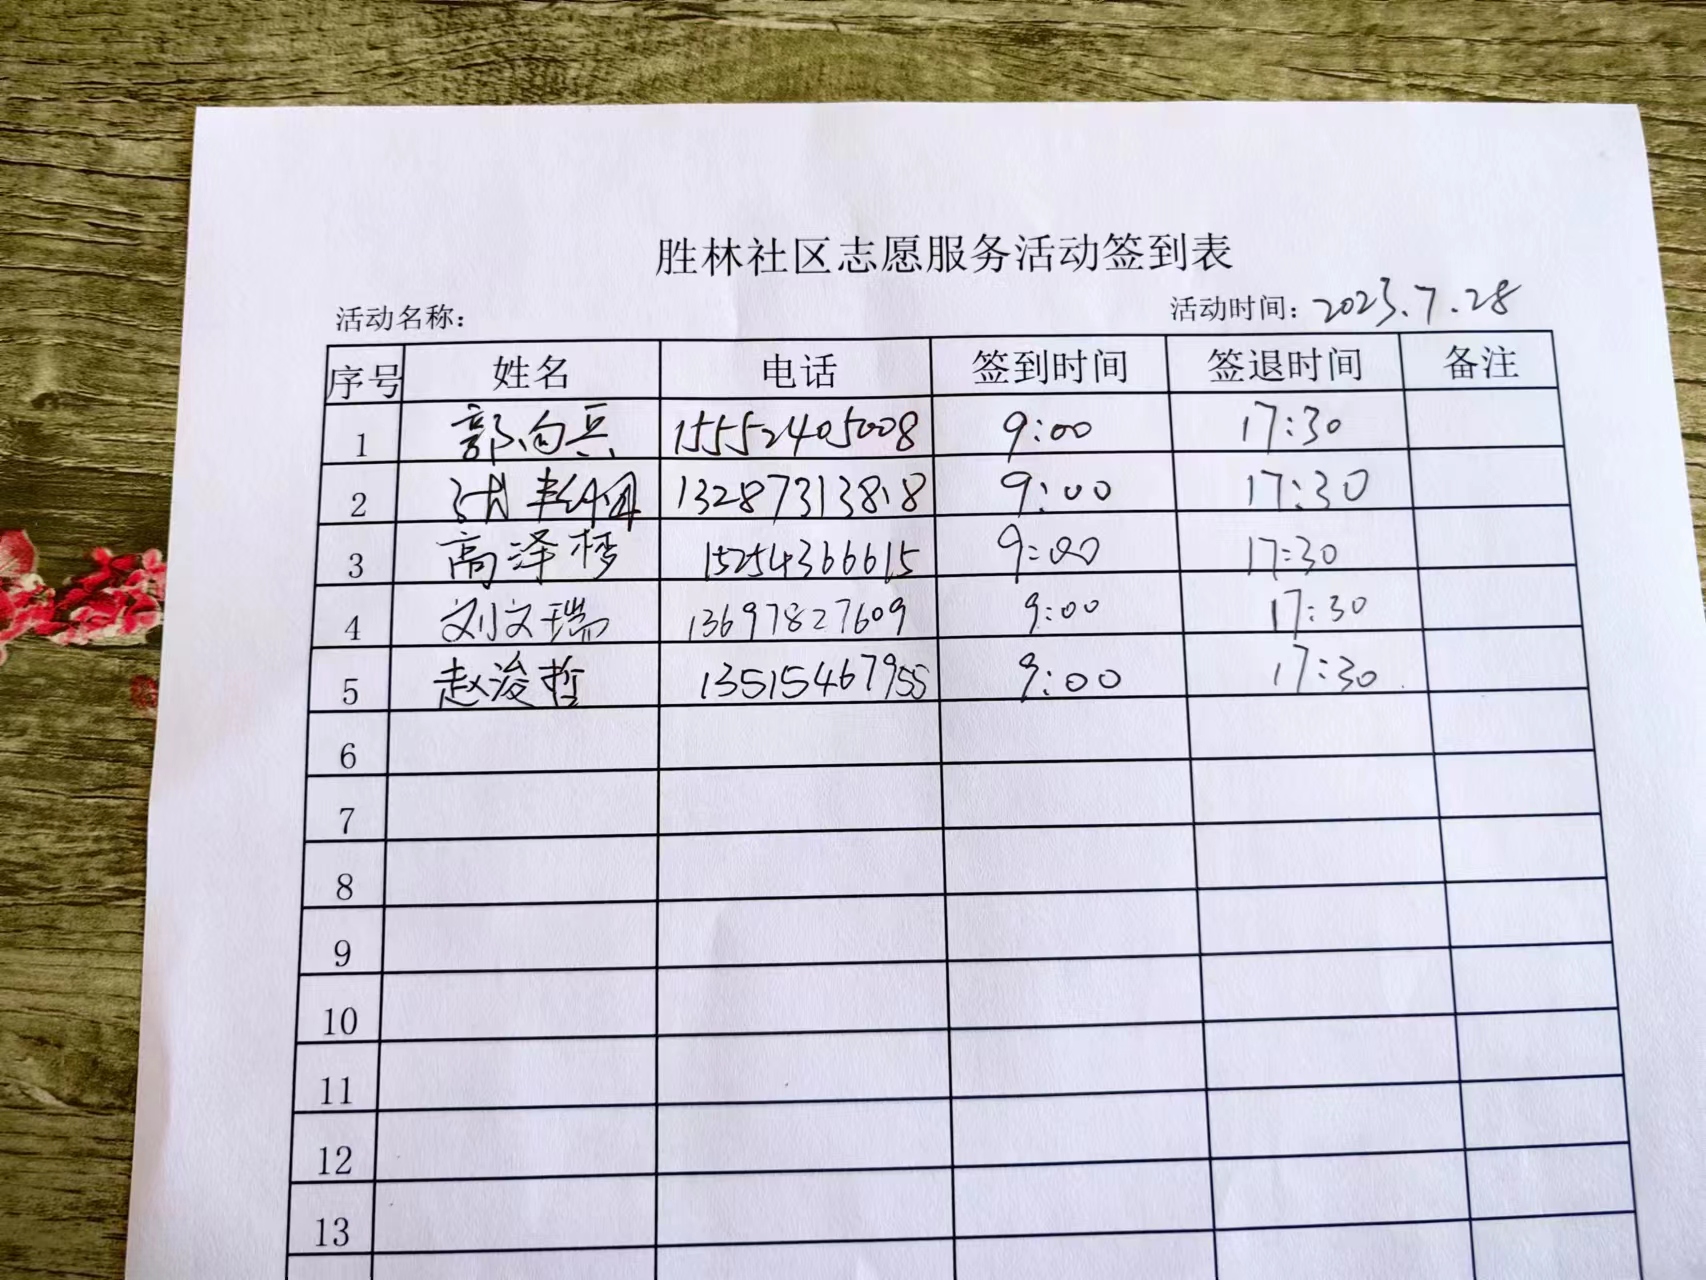 胜林社区志愿服务活动签到表
活动名称： 活动时间：2023.7.28
序号 姓名 电话 签到时间 签退时间 备注
1 郭向兵 15552405008 9:00 17:30
2 13287313818 9:00 17:30
3 高泽 15254366615 9:00 17:30
4 刘文瑞 13697827609 9:00 17:30
5 赵浚哲 13515467955 9:00 17:30
6
7
8
9
10
11
12
13